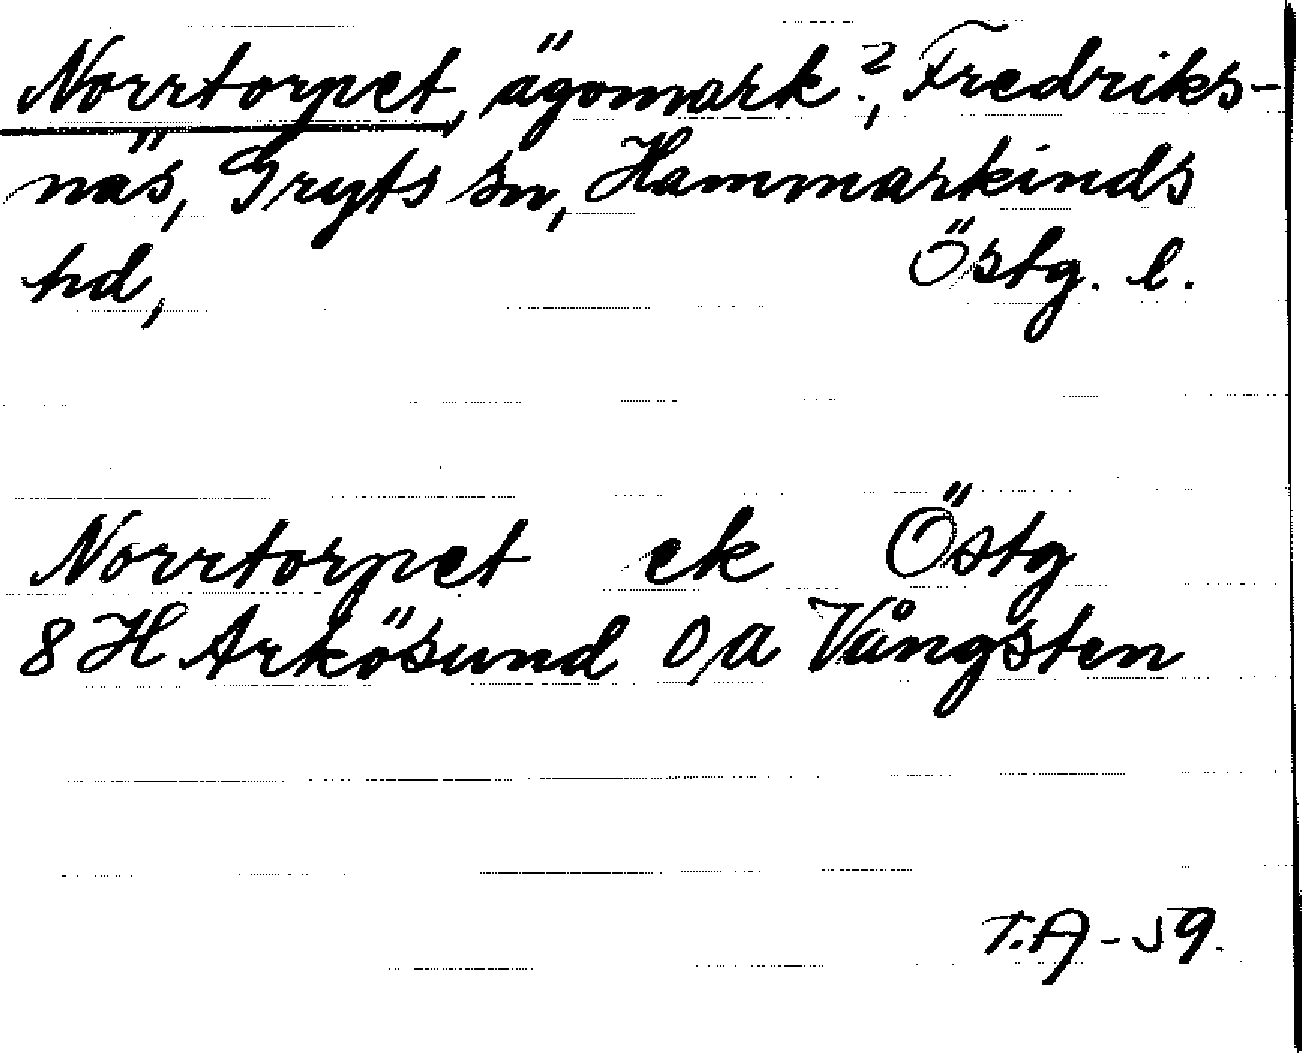 Norrtorpet, ägomark?, Fredriks-
näs, Gryts sn, Hammarkinds
hd, Östg. l.
Norrtorpet ek Östg
8H Arkösund 0,a Vångsten
T.A-59.